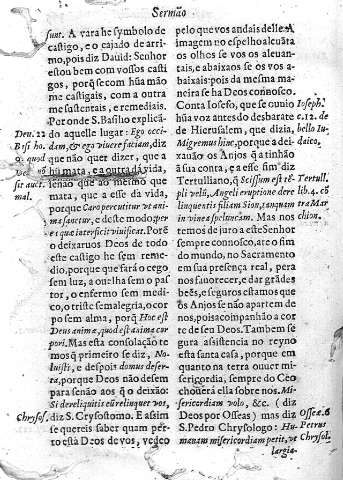 Sermão
sunt. A vara he symbolo de
castigo, e o cajado de arri-
mo, pois diz Dauid: Senhor
estou bem com vossos casti
gos, porq̃ se com hũa mão
me castigais, com a outra
me sustentais, e remediais.
Por onde S. Basilio explicã-
do aquelle lugar: Ego occi-
dam, & ego viuere faciam, diz
que não quer dizer, que a
hũ mata, e a outra dá vida,
senão que ao mesmo que
mata, que a esse da vida,
porque Caro percutitur vt ani
ma sanetur, e deste modo per
e que interficit viuificat. Porẽ
o deixaruos Deos de todo
este castigo he sem reme-
dio, porque que fará o cego
sem luz, a ouelha sem o pa-
stor, o enfermo sem medi-
co, o triste sem alegria, o cor
po sem alma, porq̃ Hoc est
Deus animæ, quod est anima cor
pori. Mas esta consolação te
mos q̃ primeiro se diz, No-
luisti, e despois domus deser-
ta, porque Deos não desem
para senão aos q̃ o deixão:
Si dereliquitis eũ relinquet vos,
diz S. Crysostomo. E assim
se quereis saber quam per-
to está Deos de vos, vedeo
Deu. 32
Basi ho.
quod
Deus nõ
sit auct.
mal.
Chrysos.
pelo que vos andais delle. A
imagem no espelho aleuãta
os olhos se vos os aleuan-
tais, e abaixaos se os vos a-
baixais: pois da mesma ma-
neira se ha Deos comnosco.
Conta Iosefo, que se ouuio
hũa voz antes do desbarate
de Hierusalem, que dizia,
Migremus hinc, porque a dei-
xauão os Anjos q̃ a tinhão
à sua conta, e a esse fim diz
Tertulliano, q̃ Scissum est tẽ-
pli velũ, Angeli eruptione dere
linquentis filiam Sion, eunquam
in vinea speluncam. Mas nos
temos de juro a este Senhor
sempre comnosco, ate o fim
do mundo, no Sacramento
em sua presença real, pera
nos fauorecer, e dar grãdes
beẽs, e seguros estamos que
os Anjos se não apartem de
nos, pois acompanhão a cor
te de seu Deos. Tambem se
gura assistencia no reyno
esta santa casa, porque em
quanto na terra ouuer mi-
sericordia, sempre do Ceo
chouerá ella sobre nos. Mi-
sericordiam volo, &c. (diz
Deos por Osseas) mas diz
S. Pedro Chrysologo: Hu-
manam misericordiam petit, vt
largia.
Ioseph.
c. 12. de
bello Iu
daico.
Tertull.
lib. 4. cõ
tra Mar
chion.
Osseæ. 6
Petrus
Chrysol.